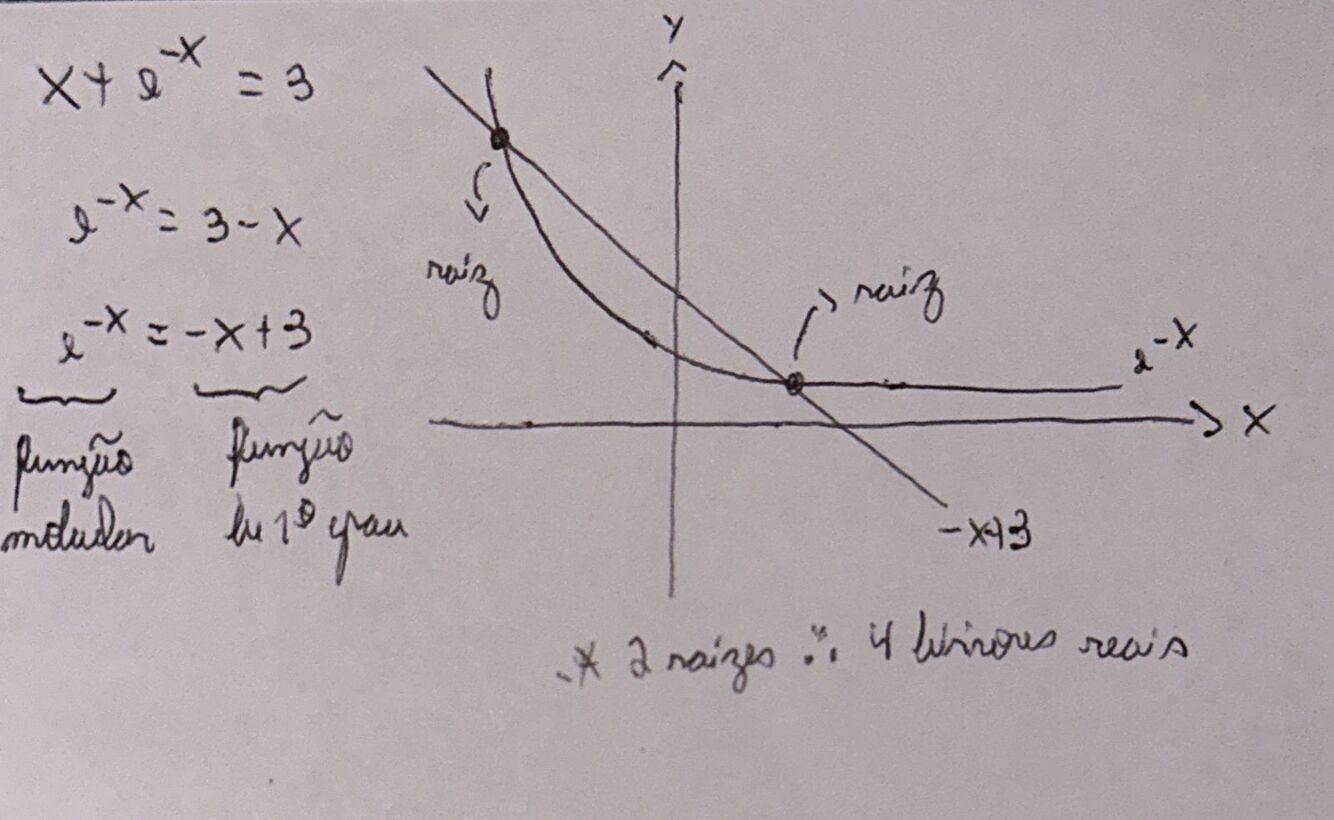 x + e^-x = 3
e^-x = 3 - x
e^-x = -x + 3
função modular
função de 1º grau
y
raiz
raiz
e^-x
x
-x+3
* 2 raizes ∴ 4 divisores reais